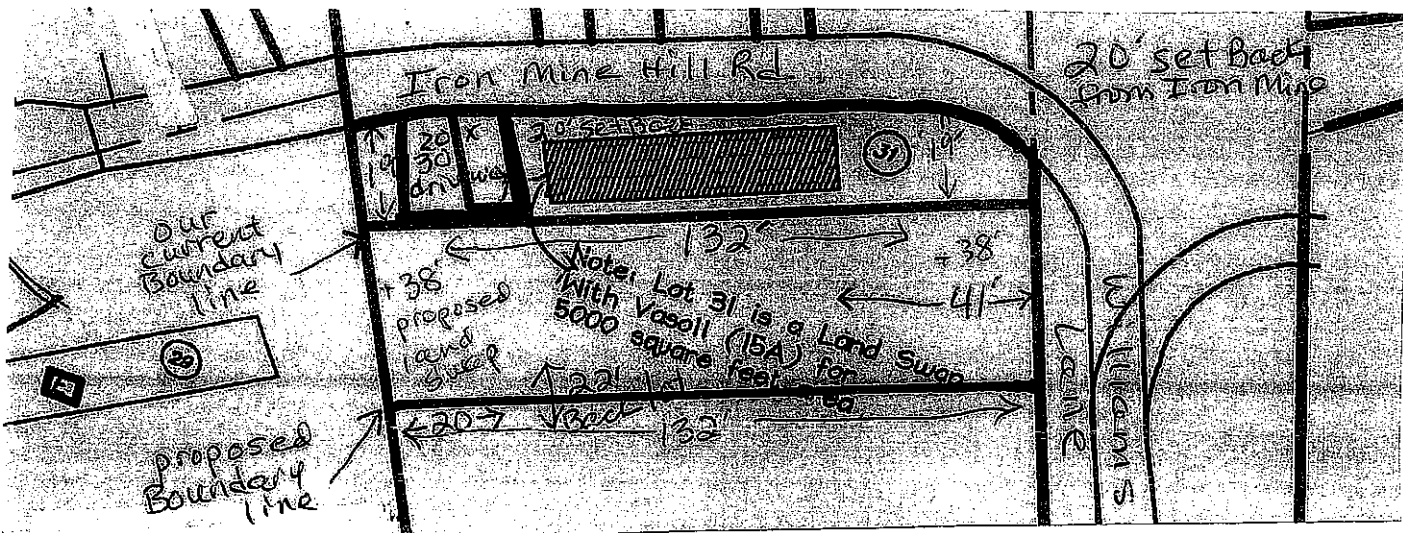 Iron Mine Hill Rd
20' set Back
from Iron Mine
19'
20 x
30
driveway
20' set Back
31
19'
our
current
Boundary
line
132'
+38'
+38'
proposed
land
swap
Note: Lot 31 is a Land Swap
With Vasoll (15A) for
5000 square feet
41'
20
22'
Back
20
132'
proposed
Boundary
line
Williams
Lane